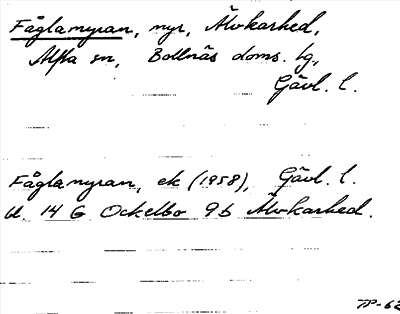 Fåglamyran, myr, Älvkarhed,
Alfta sn, Bollnäs doms. tg,
Gävl. l.
Fåglamyran, ek (1958), Gävl. l.
bl. 14 G Ockelbo 9b Älvkarhed.
TP-62